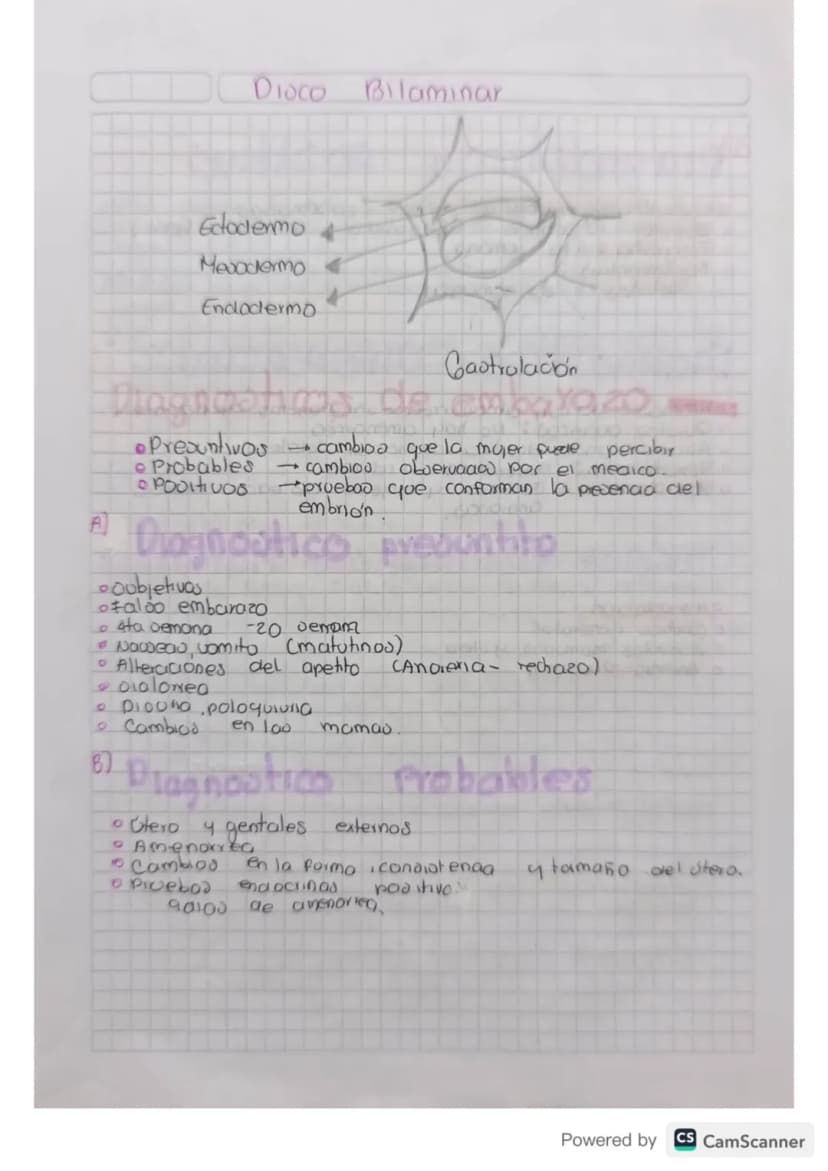 Disco Bilaminar
Ectodermo
Mesodermo
Endodermo
Gastrulación
Diagnosticos de embarazo
Presuntivos → cambios que la mujer puede percibir
Probables → cambios observados por el medico.
Positivos → pruebas que conforman la presencia del
embrión.
A) Diagnostico presuntito
Subjetivas
Falso embarazo
4ta semana -20 semana
Nauseas, vomito (matutinos)
Alteraciones del apetito (Anorexia - rechazo)
Sialorrea
Disuria, polaquiuria
Cambios en las mamas.
B) Diagnostico Probables
Útero y genitales externos
Amenorrea
Cambios en la forma, consistencia y tamaño del útero.
Pruebas endocrinas positivo.
de amenorrea,
Powered by CS CamScanner